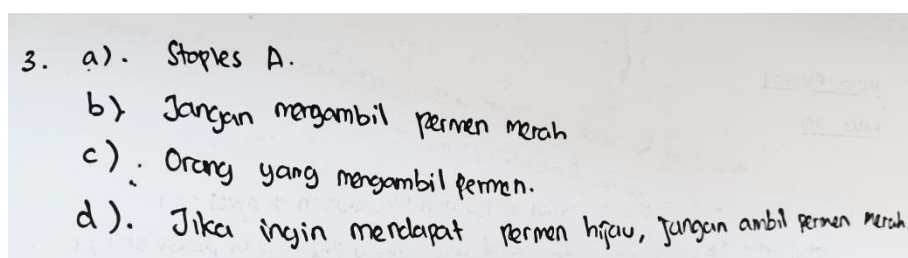 3. a). Stoples A.
b) Jangan mengambil permen merah
c). Orang yang mengambil permen.
d). Jika ingin mendapat permen hijau, jangan ambil permen merah